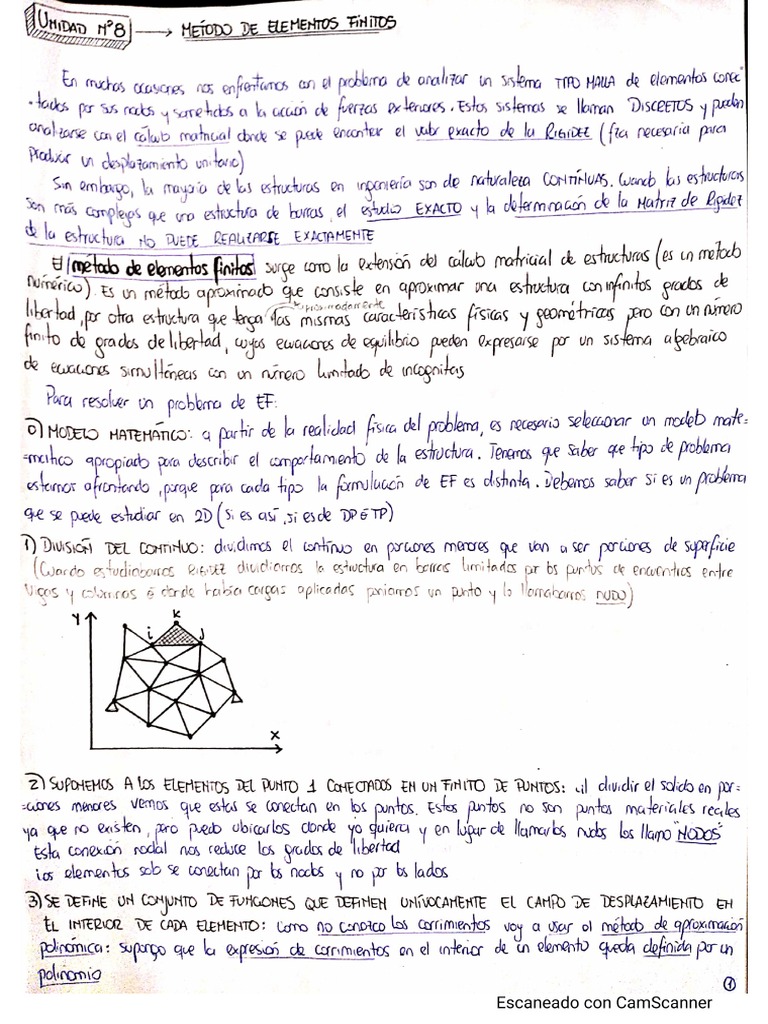 UNIDAD Nº8 → METODO DE ELEMENTOS FINITOS
En muchas ocasiones nos enfrentamos con el problema de analizar un sistema TIPO MALLA de elementos conec-
-tados por sus nudos y sometidos a la acción de fuerzas exteriores. Estos sistemas se llaman DISCRETOS y pueden
analizarse con el cálculo matricial donde se puede encontrar el valor exacto de la RIGIDEZ (fza necesaria para
producir un desplazamiento unitario)
Sin embargo, la mayoria de las estructuras en ingenieria son de naturaleza CONTÍNUAS. Cuando las estructuras
son más complejas que una estructura de barras, el estudio EXACTO y la determinación de la Matriz de Rigidez
de la estructura NO PUEDE REALIZARSE EXACTAMENTE
El método de elementos finitos surge como la extensión del cálculo matricial de estructuras (es un método
numérico). Es un método aproximado que consiste en aproximar una estructura con infinitos grados de
aproximadamente
libertad, por otra estructura que tenga las mismas características físicas y geométricas pero con un número
finito de grados de libertad, cuyas ecuaciones de equilibrio pueden expresarse por un sistema algebraico
de ecuaciones simultáneas con un número limitado de incognitas
Para resolver un problema de EF:
0) MODELO MATEMÁTICO: a partir de la realidad física del problema, es necesario seleccionar un modelo mate-
-matico apropiado para describir el comportamiento de la estructura. Tenemos que saber que tipo de problema
estamos afrontando, porque para cada tipo la formulación de EF es distinta. Debemos saber si es un problema
que se puede estudiar en 2D (si es así, si es de DP o TP)
1) DIVISIÓN DEL CONTINUO: dividimos el contínuo en porciones menores que van a ser porciones de superficie
(Cuando estudiabamos RIGIDEZ dividiamos la estructura en barras limitadas por los puntos de encuentros entre
vigas y columnas o donde había cargas aplicadas poniamos un punto y lo llamabamos NUDO)
Y
k
i
j
X
2) SUPONEMOS A LOS ELEMENTOS DEL PUNTO 1 CONECTADOS EN UN FINITO DE PUNTOS: al dividir el solido en por-
-ciones menores vemos que estas se conectan en los puntos. Estos puntos no son puntos materiales reales
ya que no existen, pero puedo ubicarlos donde yo quiera y en lugar de llamarlos nudos los llamo "NODOS"
Esta conexión nodal nos reduce los grados de libertad
Los elementos solo se conectan por los nodos y no por los lados
3) SE DEFINE UN CONJUNTO DE FUNCIONES QUE DEFINEN UNÍVOCAMENTE EL CAMPO DE DESPLAZAMIENTO EN
EL INTERIOR DE CADA ELEMENTO: como no conozco los corrimientos voy a usar el método de aproximación
polinómica: supongo que la expresión de corrimientos en el interior de un elemento queda definida por un
polinomio
1
Escaneado con CamScanner